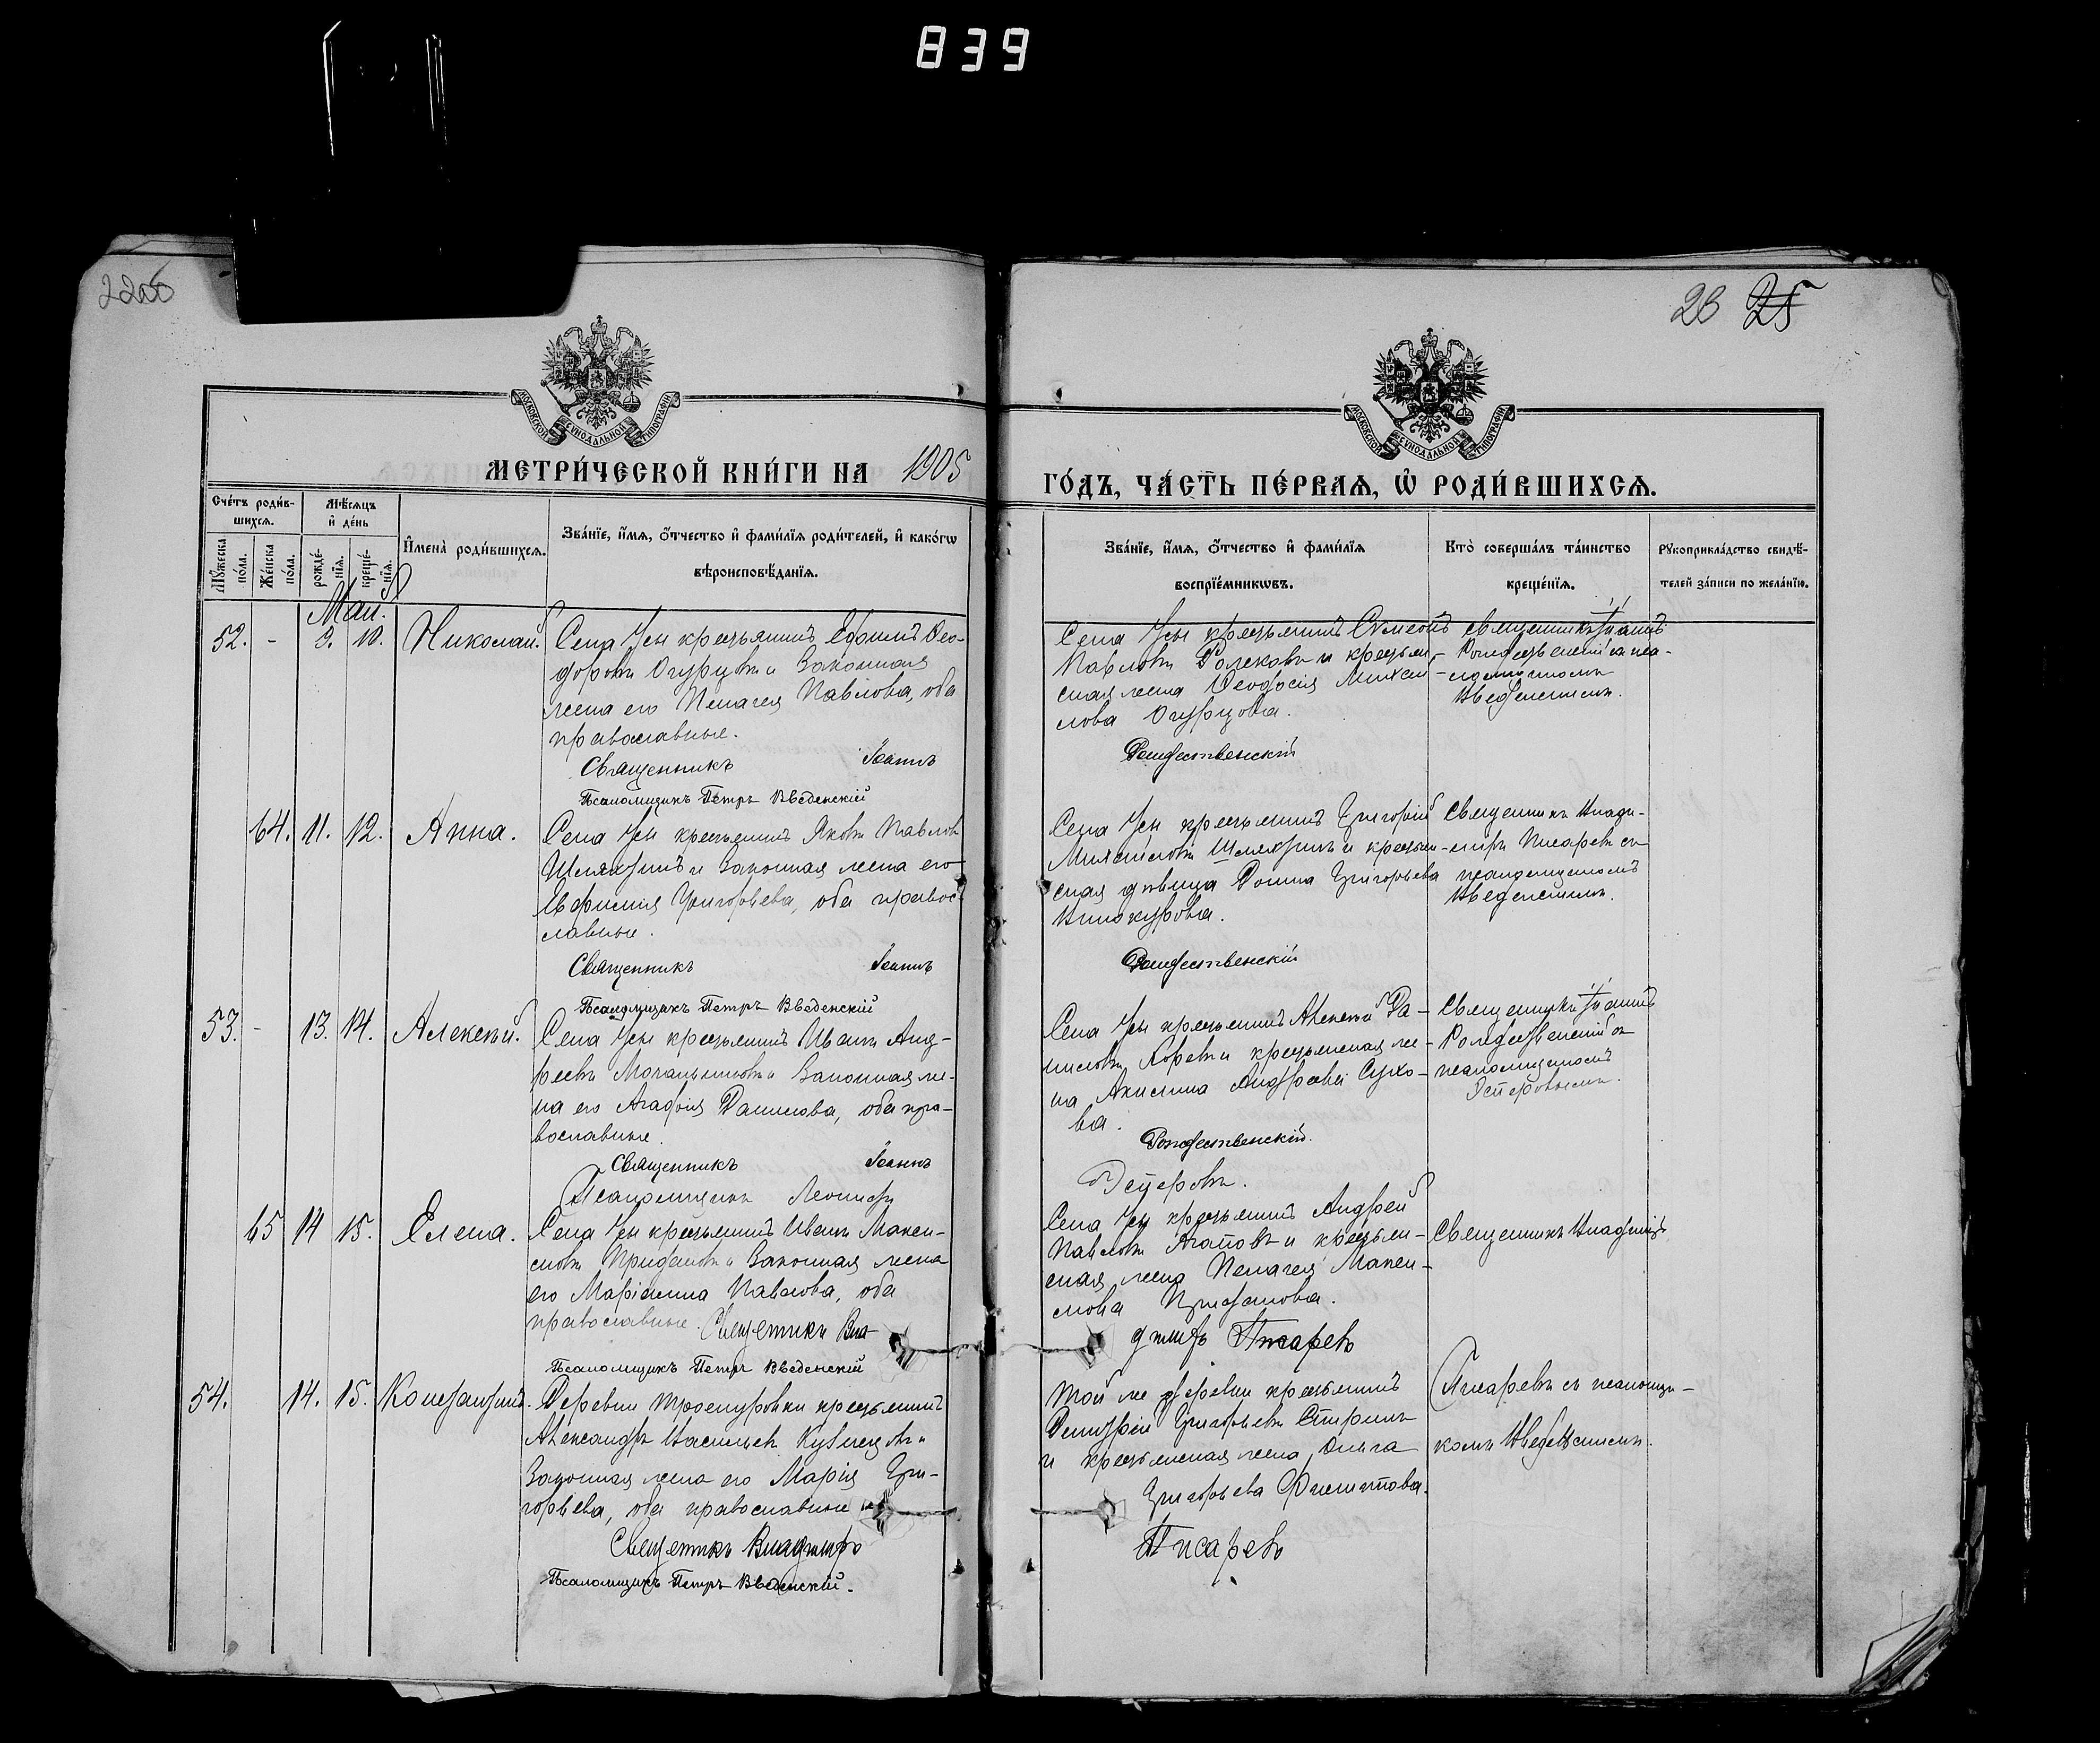 839
22об
23 25
МОСКОВСКОЙ СѴНОДАЛЬНОЙ ТИПОГРАФІИ
МОСКОВСКОЙ СѴНОДАЛЬНОЙ ТИПОГРАФІИ
МЕТРИ́ЧЕСКОЙ КНИ́ГИ НА 1905
ГО́ДЪ, ЧА́СТЬ ПЕ́РВАѦ, Ѡ҆ РОДИ́ВШИХСѦ.
Сче́тъ роди́в-
шихсѧ.
Мѣ́сѧцъ
и҆ де́нь
Мꙋ́жеска
по́ла.
Же́нска
по́ла.
рожде́-
нїѧ.
креще́-
нїѧ.
И҆мена̀ роди́вшихсѧ.
Зва́нїе, и҆́мѧ, ѻ҆́тчество и҆ фами́лїѧ роди́телей, и҆ како́гѡ
вѣроисповѣ́данїѧ.
Зва́нїе, и҆́мѧ, ѻ҆́тчество и҆ фами́лїѧ
воспрїе́мникѡвъ.
Кто̀ соверша́лъ та́инство
креще́нїѧ.
Рꙋкоприкла́дство свидѣ́-
телей за́писи по жела́нїю.
Май.
52. - 9. 10. Николай.
Села Усы крестьянинъ Ефимъ Ѳео-
доровъ Огурцовъ и законная
жена его Пелагея Павлова, оба
православные.
Священникъ Іоаннъ
Псаломщикъ Петръ Введенскій
Села Усы крестьянинъ Сѵмеонъ
Павловъ и крестьян-
ская жена Ѳеодосія Михаи-
лова Огурцова.
Рождественскій
Священникъ Іоаннъ
Рождественскій съ пса-
ломщикомъ
Введенскимъ.
64. 11. 12. Анна.
Села Усы крестьянинъ Яковъ Павловъ
и законная жена его
Евфимія Григорьева, оба правос-
лавные.
Священникъ Іоаннъ
Псаломщикъ Петръ Введенскій
Села Усы крестьянинъ Григорій
Михайловъ и крестьян-
ская дѣвица Домна Григорьева
Винокурова.
Рождественскій
Священникъ Влади-
міръ Писаревъ съ
псаломщикомъ
Введенскимъ.
53. - 13. 14. Алексѣй.
Села Усы крестьянинъ Иванъ Анд-
реевъ и законная же-
на его Агафія Данилова, оба пра-
вославные.
Священникъ Іоаннъ
Псаломщикъ Леонидъ
Села Усы крестьянинъ Алексѣй Да-
ниловъ и крестьянская же-
на Акилина Андреева Сухо-
ва.
Рождественскій.
Священникъ Іоаннъ
Рождественскій съ
псаломщикомъ
65 14 15. Елена.
Села Усы крестьянинъ Иванъ Макси-
мовъ и законная жена
его Маріанна Павлова, оба
православные. Священникъ Вла-
Псаломщикъ Петръ Введенскій
Села Усы крестьянинъ Андрей
Павловъ Агаповъ и крестьян-
ская жена Пелагея Макси-
мова
диміръ Писаревъ
Священникъ Владиміръ
54. 14. 15. Константинъ.
Деревни крестьянинъ
Александръ Васильевъ Кузнецовъ и
законная жена его Марія Гри-
горьева, оба православные
Священникъ Владиміръ
Псаломщикъ Петръ Введенскій.
Той же деревни крестьянинъ
Димитрій Григорьевъ
и крестьянская жена Ольга
Григорьева Филиппова.
Писаревъ
Писаревъ съ псаломщи-
комъ Введенскимъ.